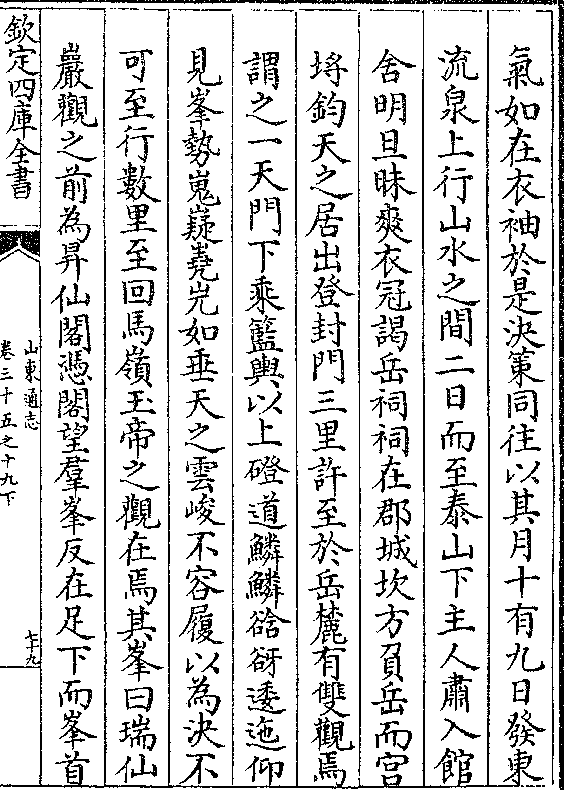 氣如在衣袖於是決策同往以其月十有九日發東
流泉上行山水之間二日而至泰山下主人肅入館
舍明旦昧爽衣冠謁岳祠祠在郡城坎方負岳而宮
埒鈞天之居出登封門三里許至於岳麓有雙觀焉
謂之一天門下乘籃輿以上磴道鱗鱗谽谺逶迤仰
見峯勢嵬嶷嶤屼如垂天之雲峻不容履以為決不
可至行數里至回馬嶺玉帝之觀在焉其峯曰瑞仙
巖觀之前為昇仙閣憑閣望羣峯反在足下而峯首
欽定四庫全書
山東通志
卷三十五之十九下
七十九